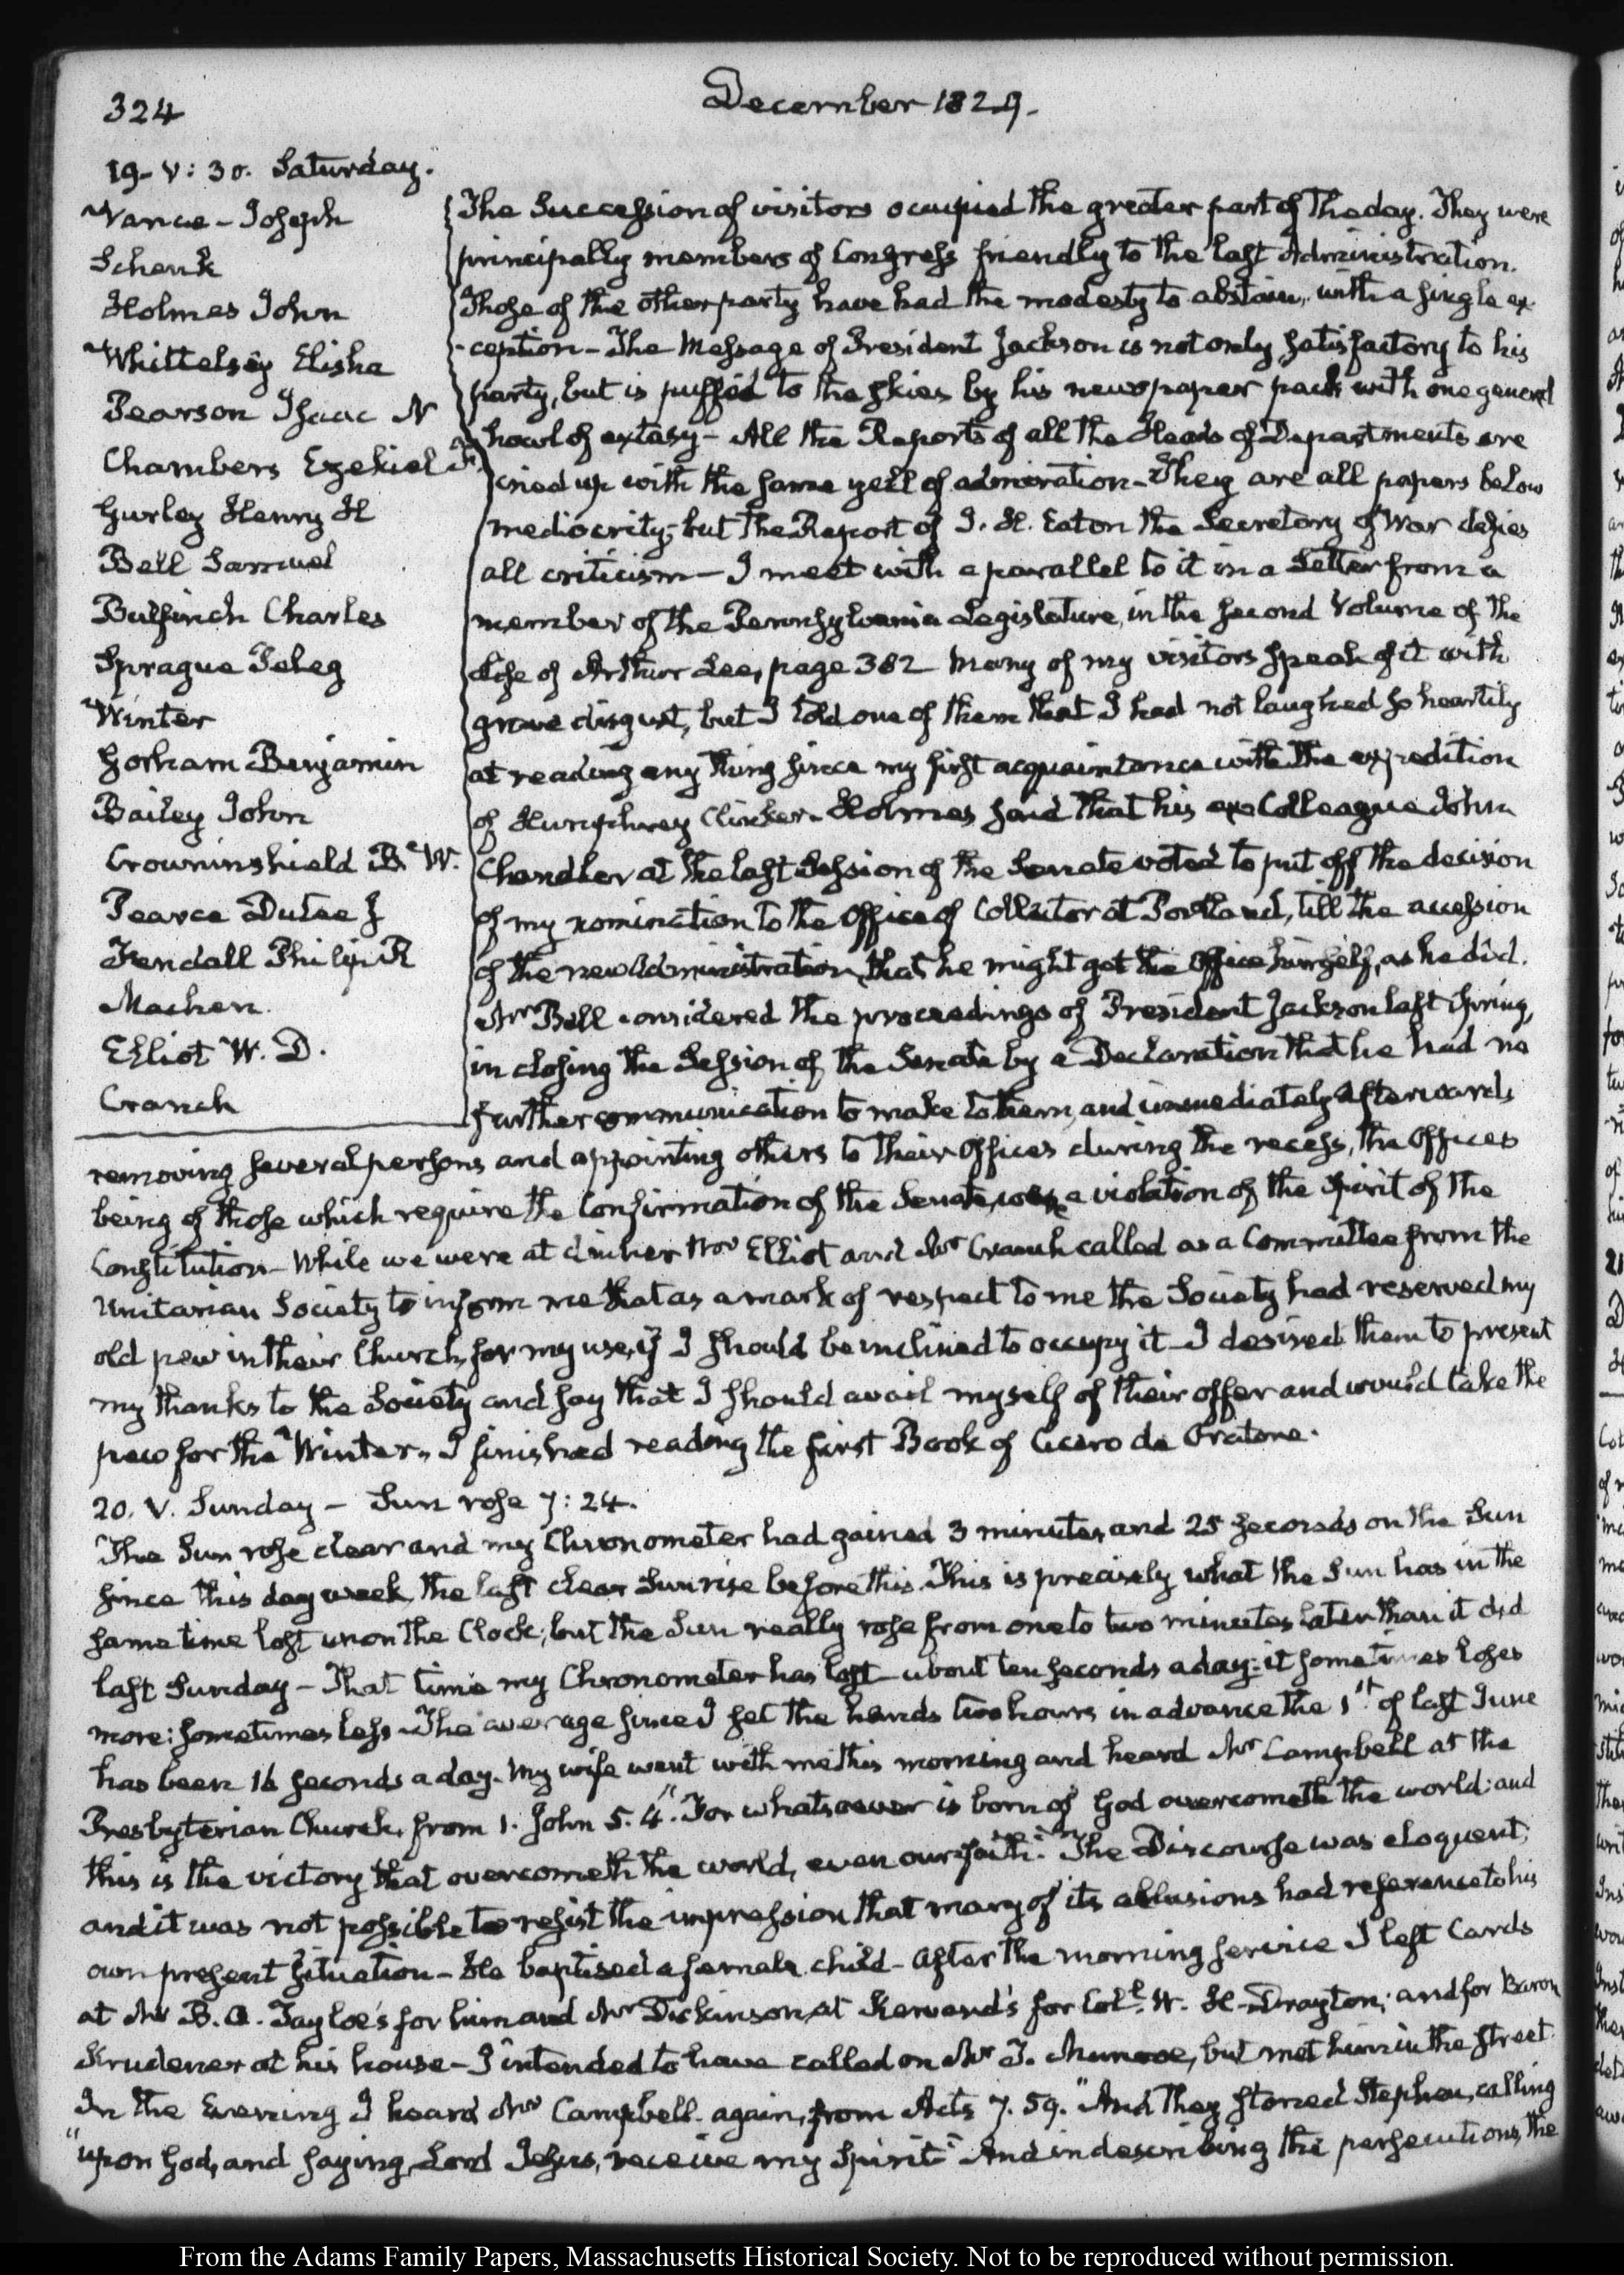 324
December 1829.
19. V: 30. Saturday.
Vance - Joseph
Schenk
Holmes John
Whittelsey Elisha
Pearson Isaac N
Chambers Ezekiel F.
Gurley Henry H
Bell Samuel
Bulfinch Charles
Sprague Peleg
Winter
Gorham Benjamin
Bailey John
Crowninshield B. W.
Pearce Dutee J
Fendall Philip R
Machen
Elliot W. D.
Cranch
The Succession of visitors occupied the greater part of the day. They were
principally members of Congress friendly to the last Administration.
Those of the other party have had the modesty to abstain, with a single ex-
-ception - The Message of President Jackson is not only satisfactory to his
party, but is puffed to the skies by his newspaper pack with one general
howl of extasy - All the Reports of all the Heads of Departments are
cried up with the same yell of admiration - They are all papers below
mediocrity; but the Report of J. H. Eaton the Secretary of War defies
all criticism - I meet with a parallel to it in a Letter from a
member of the Pennsylvania Legislature, in the second Volume of the
Life of Arthur Lee, page 382 Many of my visitors speak of it with
grave disgust, but I told one of them that I had not laughed so heartily
at reading any thing since my first acquaintance with the expedition
of Humphrey Clinker. Holmes said that his ex Colleague John
Chandler at the last Session of the Senate voted to put off the decision
of my nomination to the Office of Collector at Portland, till the accession
of the new Administration, that he might get the Office himself, as he did.
Mr Bell considered the proceedings of President Jackson last Spring,
in closing the Session of the Senate by a Declaration that he had no
further communication to make to them, and immediately afterwards
removing several persons and appointing others to their Offices during the recess, the Offices
being of those which require the Confirmation of the Senate, a violation of the Spirit of the
Constitution - While we were at dinner Mr Elliot and Mr Cranch called as a Committee from the
Unitarian Society to inform me that as a mark of respect to me the Society had reserved my
old pew in their Church, for my use, if I should be inclined to occupy it - I desired them to present
my thanks to the Society and say that I should avail myself of their offer and would take the
pew for the Winter. I finished reading the first Book of Cicero de Oratore.
20. V. Sunday - Sun rose 7: 24.
The Sun rose clear and my Chronometer had gained 3 minutes and 25 seconds on the Sun
since this day week, the last clear Sun rise before this. This is precisely what the Sun has in the
same time lost upon the Clock; but the Sun really rose from one to two minutes later than it did
last Sunday - That time my Chronometer has lost about ten seconds a day: it sometimes loses
more: sometimes less. The average since I set the hands two hours in advance the 1st of last June
has been 16 seconds a day. My wife went with me this morning and heard Mr Campbell at the
Presbyterian Church, from 1. John 5. 4. "For whatsoever is born of God overcometh the world: and
this is the victory that overcometh the world, even our faith." The Discourse was eloquent;
and it was not possible to resist the impression that many of its allusions had reference to his
own present situation - He baptised a female child - After the morning service I left Cards
at Mr B. O. Tayloe's for him and Mr Dickinson, at Kervand's for Coll. W. H. Drayton; and for Baron
Krudener at his house - I intended to have called on Mr T. Munroe, but met him in the street.
In the Evening I heard Mr Campbell again, from Acts 7. 59. "And they stoned Stephen, calling
"upon God, and saying, Lord Jesus, receive my Spirit" And in describing the persecutions, the
From the Adams Family Papers, Massachusetts Historical Society. Not to be reproduced without permission.